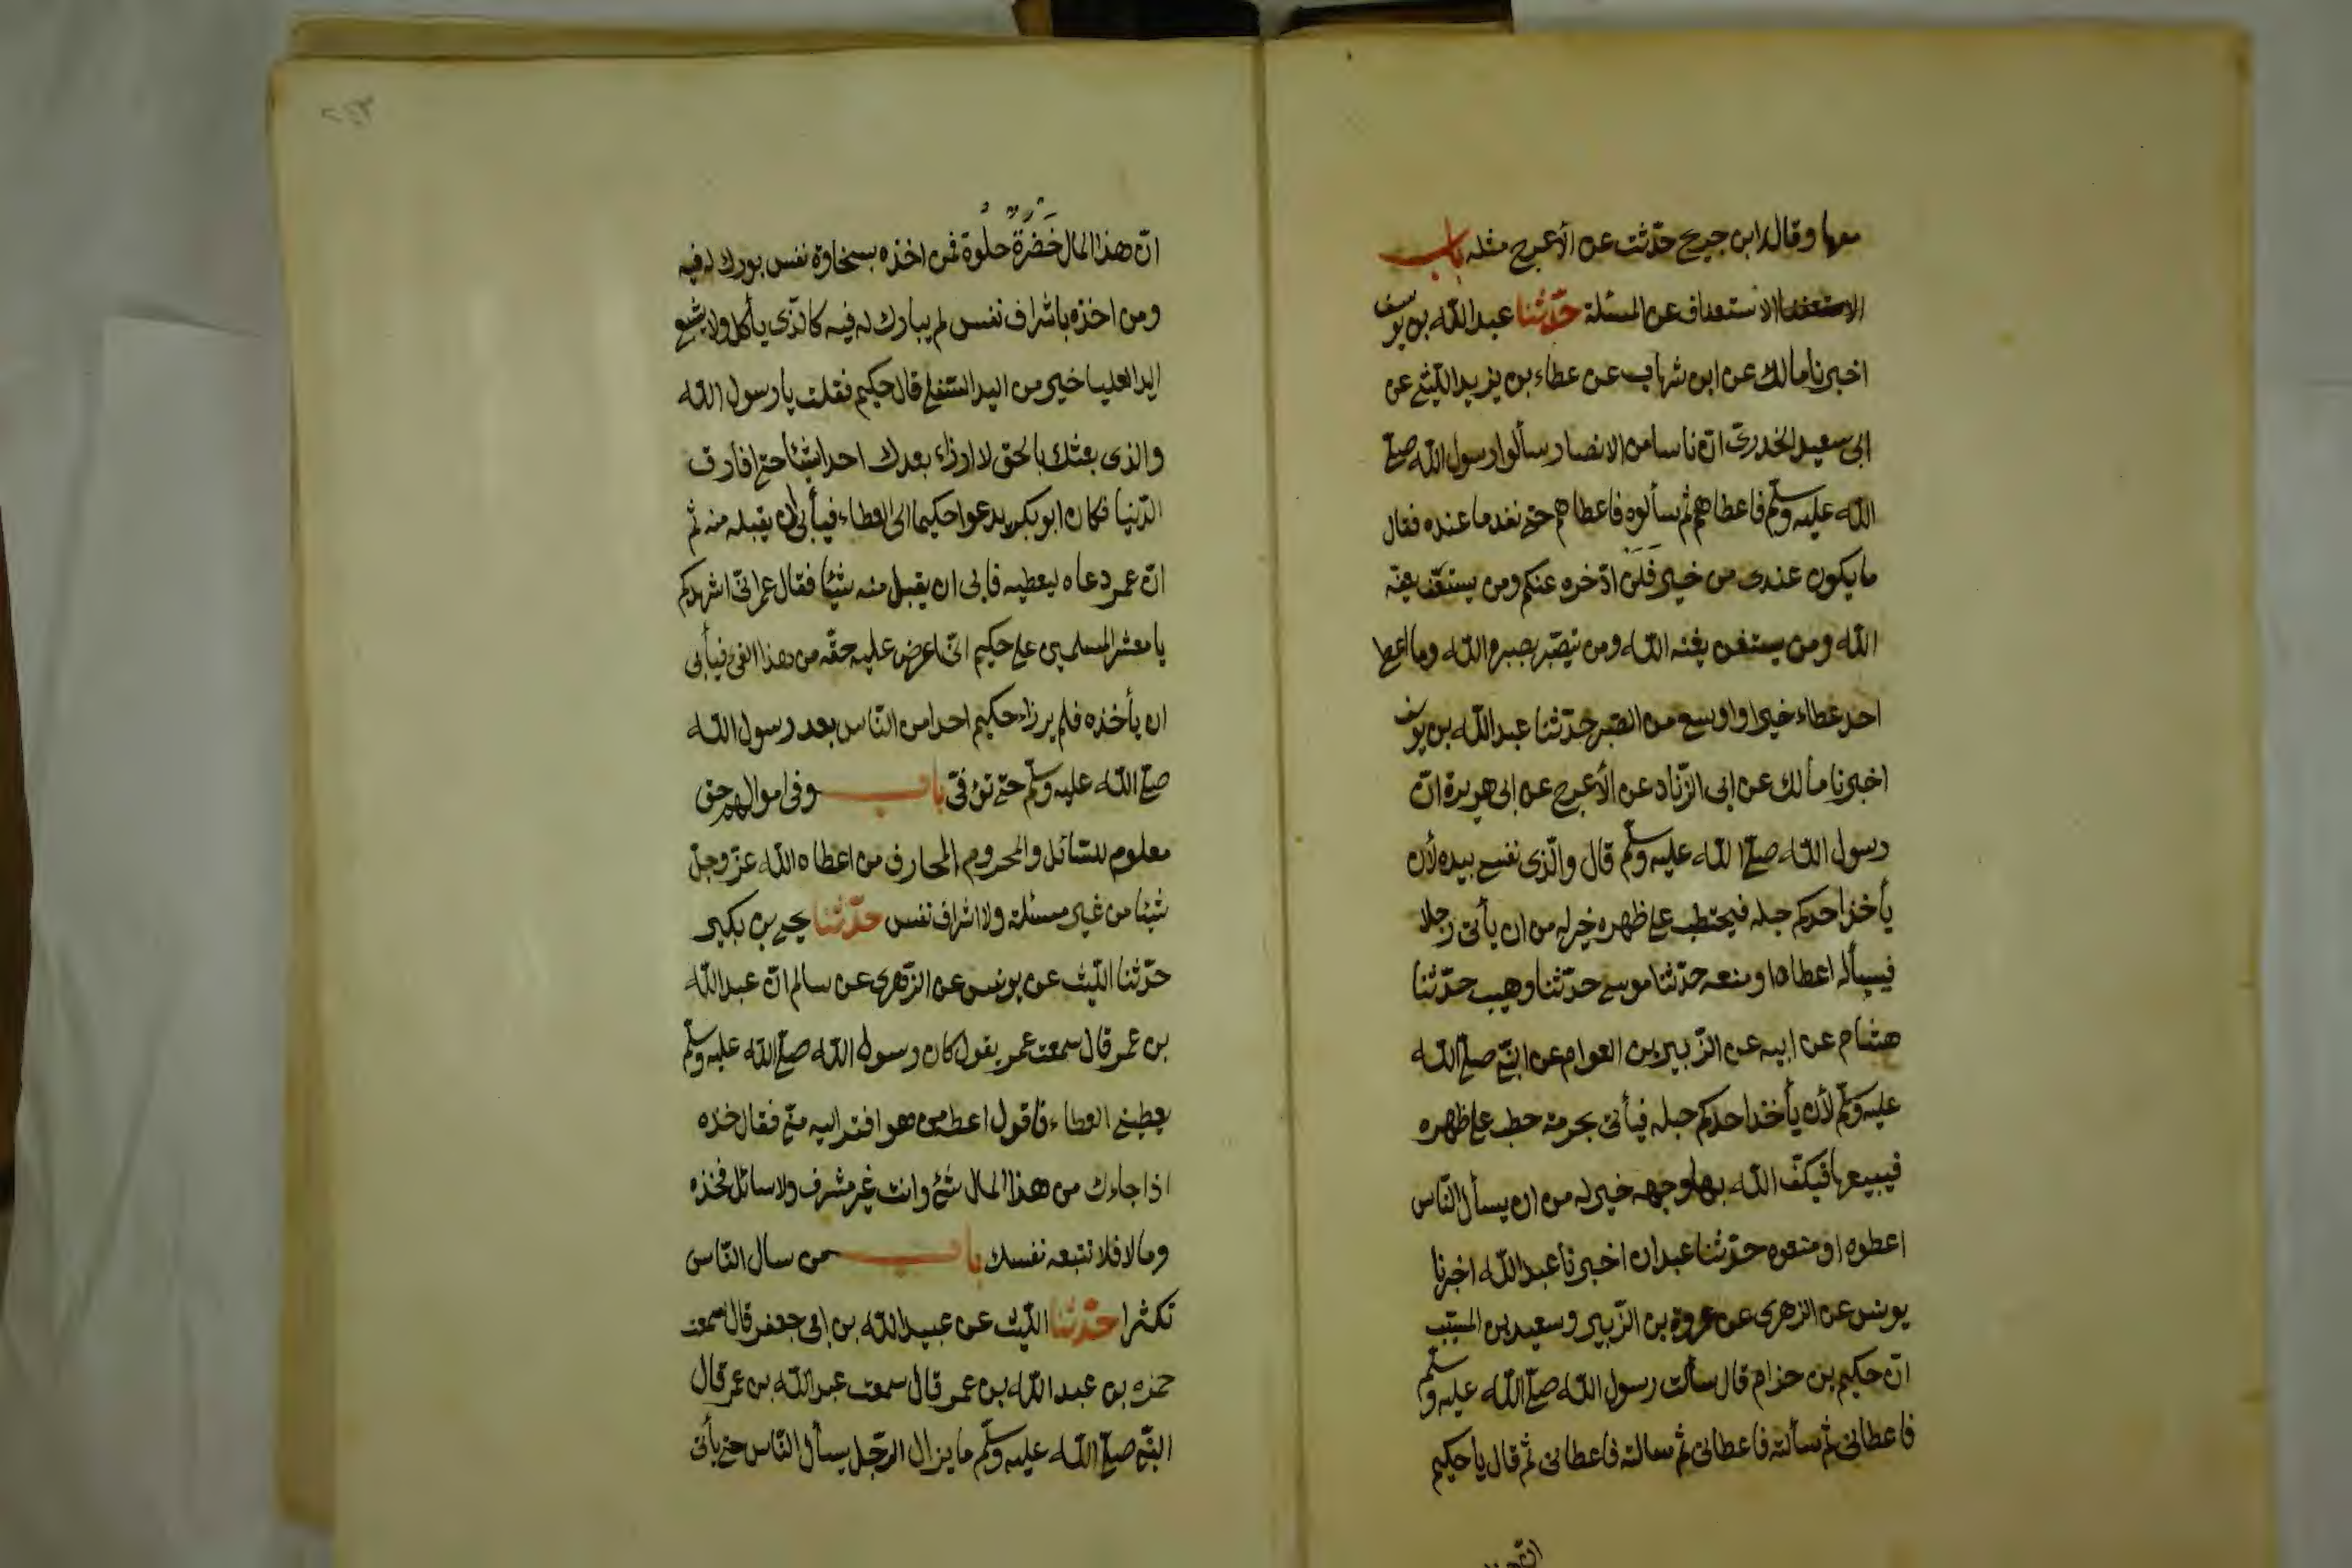 معها وقال ابن جريج حدّثت عن الأعرج مثله باب
الاستعفا الاستعفاف عن المسئلة حدّثنا عبد اللّه بن يوسف
اخبرنا مالك عن ابن شهاب عن عطاء بن يزيد اللّيثي عن
ابى سعيد الخدرىّ انّ ناسا من الانصار سألوا رسول اللّه صلّى
اللّه عليه وسلّم فاعطاهم ثم سألوه فاعطاهم حتى نفد ما عنده فقال
ما يكون عندى من خير فَلَن ادّخره عنكم ومن يستعفّ يعفّه
اللّه ومن يستغن يغنه اللّه ومن يتصبّر يصبره اللّه وما اعطا
احد عطاء خيرا واوسع من الصّبر حدّثنا عبد اللّه بن يوسف
اخبرنا مالك عن ابى الزّناد عن الأعرج عن ابى هريرة انّ
رسول اللّه صلّى اللّه عليه وسلّم قال والّذى نفسى بيده لأن
يأخذ احدكم حبله فيحتطب على ظهره خير له من ان يأتى رجلا
فيسأله اعطاه او منعه حدّثنا موسى حدّثنا وهيب حدّثنا
هشام عن ابيه عن الزّبير بن العوام عن النّبي صلّى اللّه
عليه وسلّم لأن يأخذ احدكم حبله فيأتى بحزمة حطب على ظهره
فيبيعها فيكفّ اللّه بها وجهه خير له من ان يسأل النّاس
اعطوه او منعوه حدّثنا عبدان اخبرنا عبد اللّه اخبرنا
يونس عن الزهرى عن عروة بن الزّبير وسعيد بن المسيّب
انّ حكيم بن حزام قال سألت رسول اللّه صلّى اللّه عليه وسلّم
فاعطانى ثم سألته فاعطانى ثم سالته فاعطانى ثم قال يا حكيم
انّ هذا المال خَضِرَةٌ حلوة فمن اخذه بسخاوة نفس بورك له فيه
ومن اخذه باشراف نفس لم يبارك له فيه كالّذى يأكل ولا يشبع
اليد العليا خير من اليد السّفلى قال حكيم فقلت يا رسول اللّه
والذى بعثك بالحق لا ارزاء بعدك احدا شيئا حتى افارق
الدّنيا فكان ابو بكر يدعوا حكيما الى العطاء فيأبى لأن يقبله منه ثم
انّ عمر دعاه ليعطيه فابى ان يقبل منه شيئا فقال عمر انّى اشهدكم
يا معشر المسلمين على حكيم انّى اعرض عليه حقّه من هذا الفئ فيأبى
ان يأخذه فلم يرزاء حكيم احدا من النّاس بعد رسول اللّه
صلّى اللّه عليه وسلّم حتى توفّى باب وفى اموالهم حق
معلوم للسّائل والمحروم المحارف من اعطاه اللّه عزّ وجلّ
شيئا من غير مسئلة ولا اشراف نفس حدّثنا يحيى بن بكير
حدّثنا اللّيث عن يونس عن الزّهرى عن سالم انّ عبد اللّه
بن عمر قال سمعت عمر يقول كان رسول اللّه صلّى اللّه عليه وسلّم
يعطينى العطاء فاقول اعط من هو افقر اليه منّى فقال خذه
اذا جاءك من هذا المال شئ وانت غير مشرف ولا سائل فخذه
وما لا فلا تتبعه نفسك باب من سال النّاس
تكثرا حدّثنا اللّيث عن عبيد اللّه بن ابى جعفر قال سمعت
حمزه بن عبد اللّه بن عمر قال سمعت عبد اللّه بن عمر قال
النّبى صلّى اللّه عليه وسلّم ما يزال الرّجل يسأل النّاس حتى يأتى